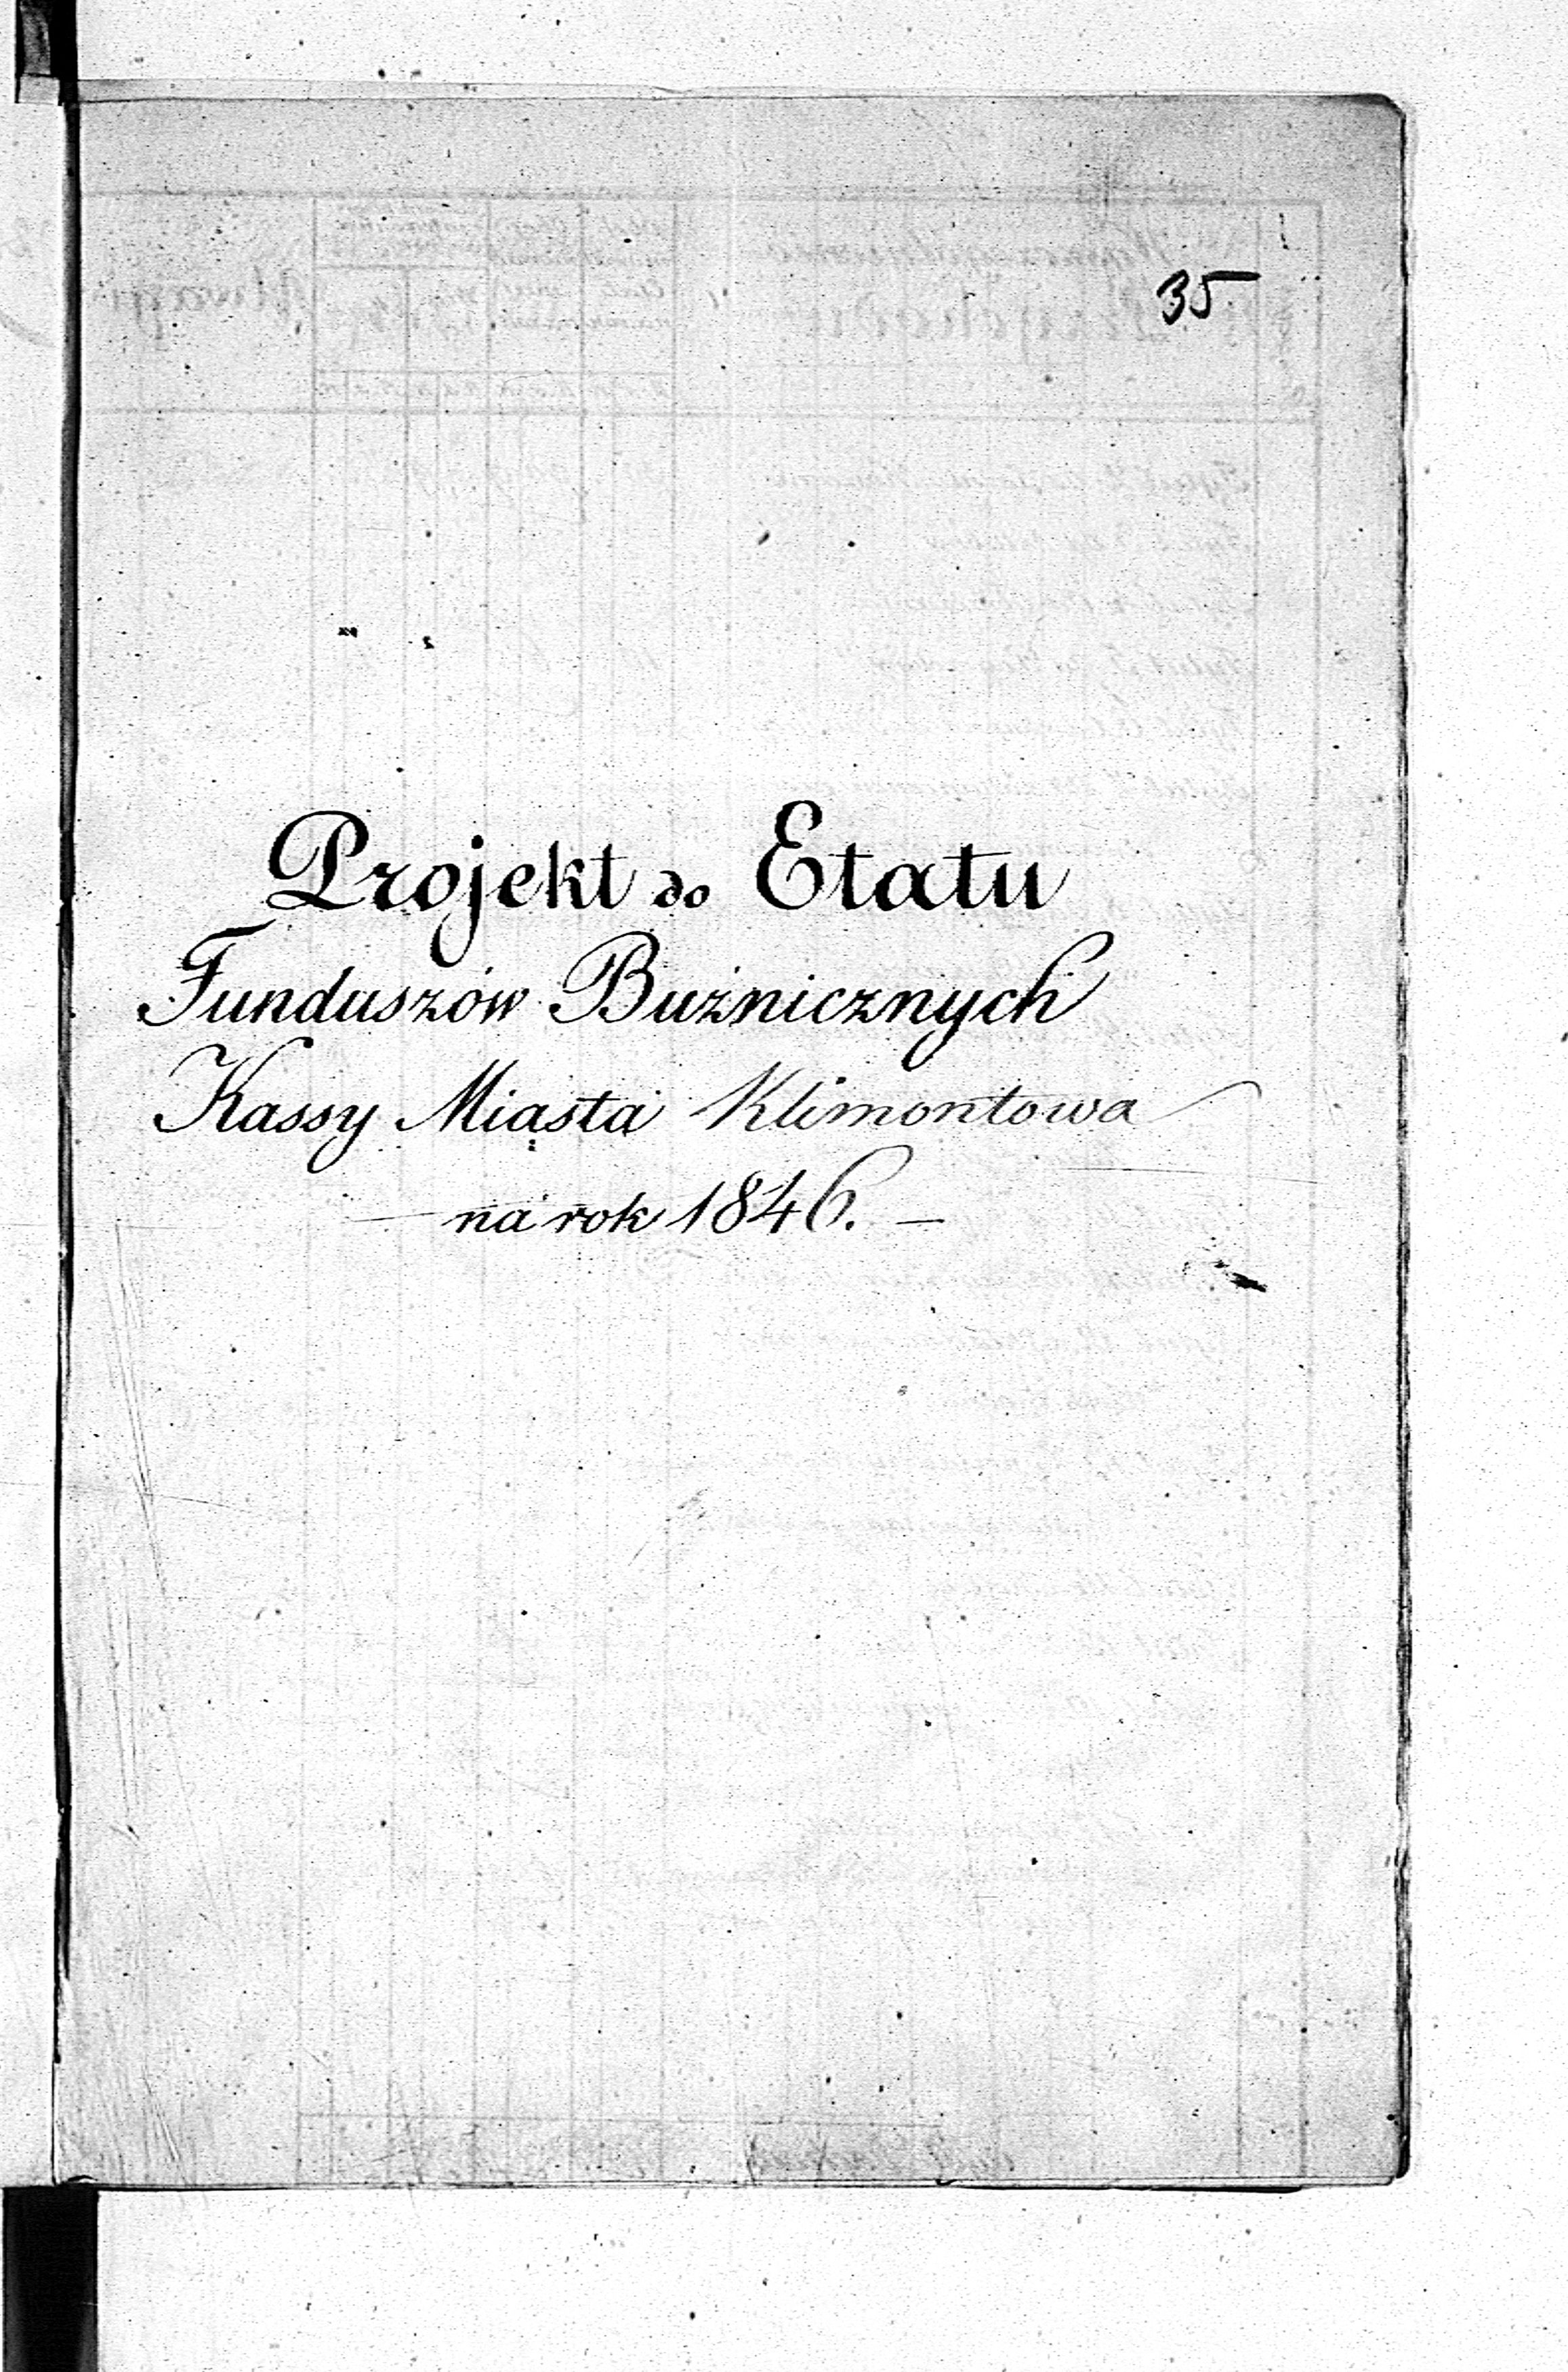 35
Projekt do Etatu
Funduszów Bużnicznych
Kassy Miasta Klimontowa
— na rok 1846. —